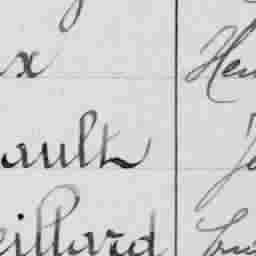 x Hen
ault Je
eillard